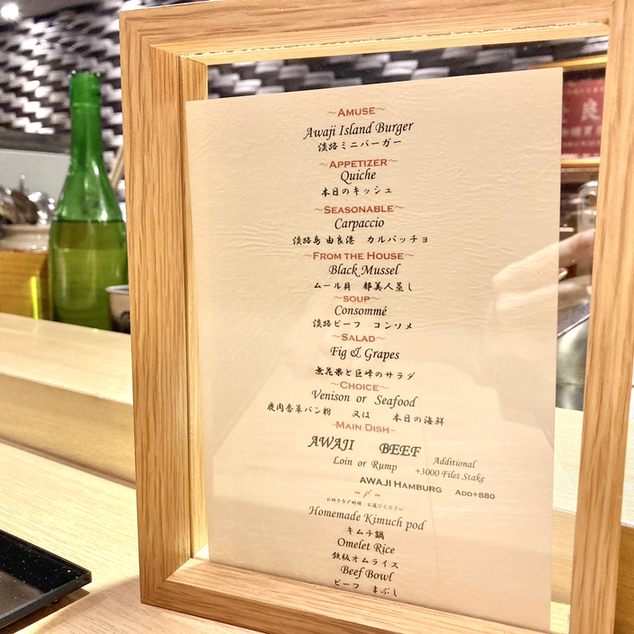 ~AMUSE~
Awaji Island Burger
淡路ミニバーガー
~APPETIZER~
Quiche
本日のキッシュ
~SEASONABLE~
Carpaccio
淡路島 由良港 カルパッチョ
~FROM THE HOUSE~
Black Mussel
ムール貝 都美人蒸し
~SOUP~
Consommé
淡路ビーフ コンソメ
~SALAD~
Fig & Grapes
無花果と巨峰のサラダ
~CHOICE~
Venison or Seafood
鹿肉香草パン粉 又は 本日の海鮮
~MAIN DISH~
AWAJI BEEF
Loin or Rump
Additional
+3000 Filet Stake
AWAJI HAMBURG ADD+880
~〆~
お好きな〆料理 お選びください
Homemade Kimuch pod
キムチ鍋
Omelet Rice
鉄板オムライス
Beef Bowl
ビーフ まぶし
良